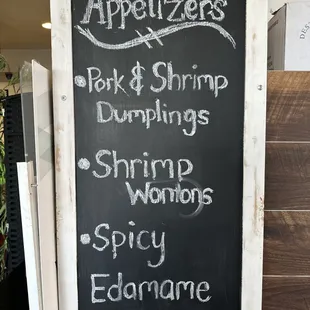 Appetizers
Pork & Shrimp
Dumplings
Shrimp
Wontons
Spicy
Edamame